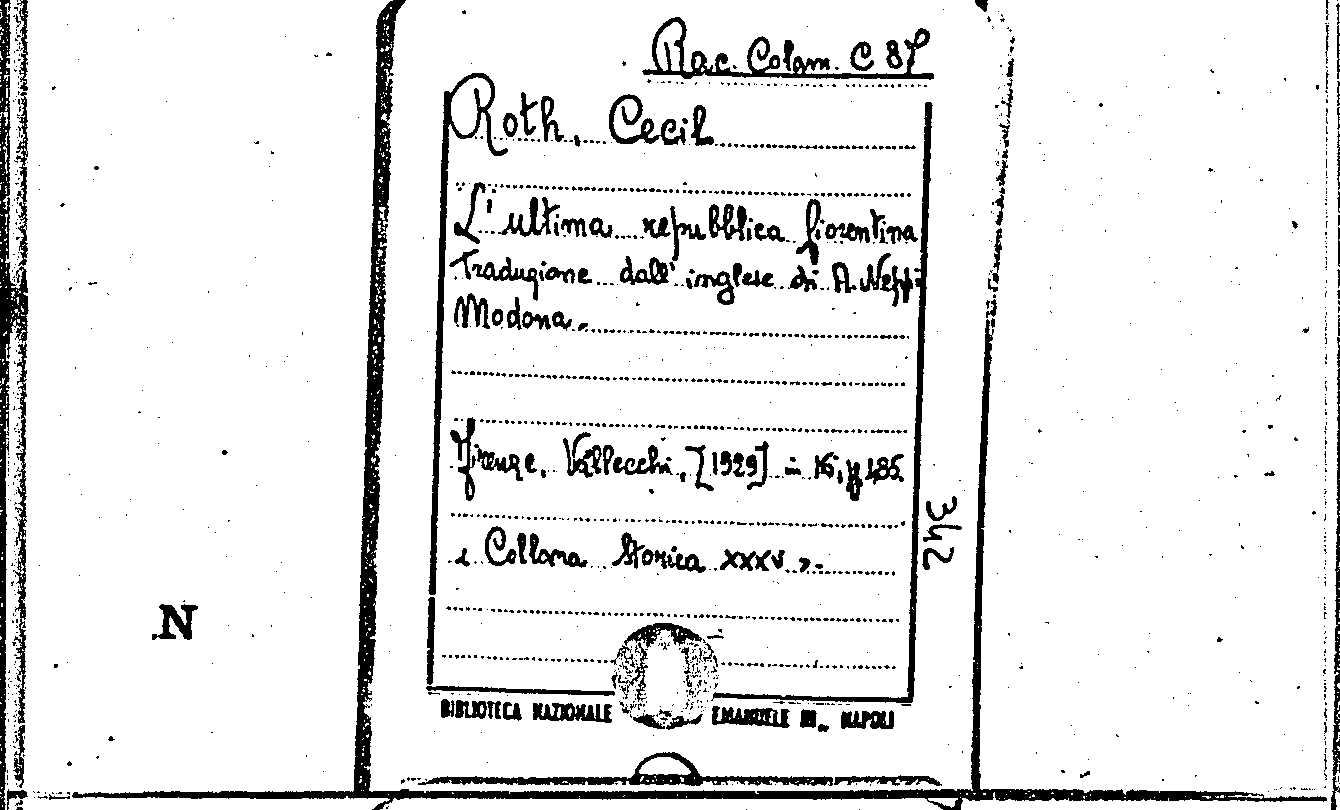 Rac. Colom. C 87
Roth, Cecil
L'ultima repubblica fiorentina
Traduzione dall'inglese di A. Neppi
Modona.-
Firenze, Vallecchi, [1929] in 16, p
« Collana Storica XXXV ».-
342
N
BIBLIOTECA NAZIONALE EMANUELE III„ NAPOLI